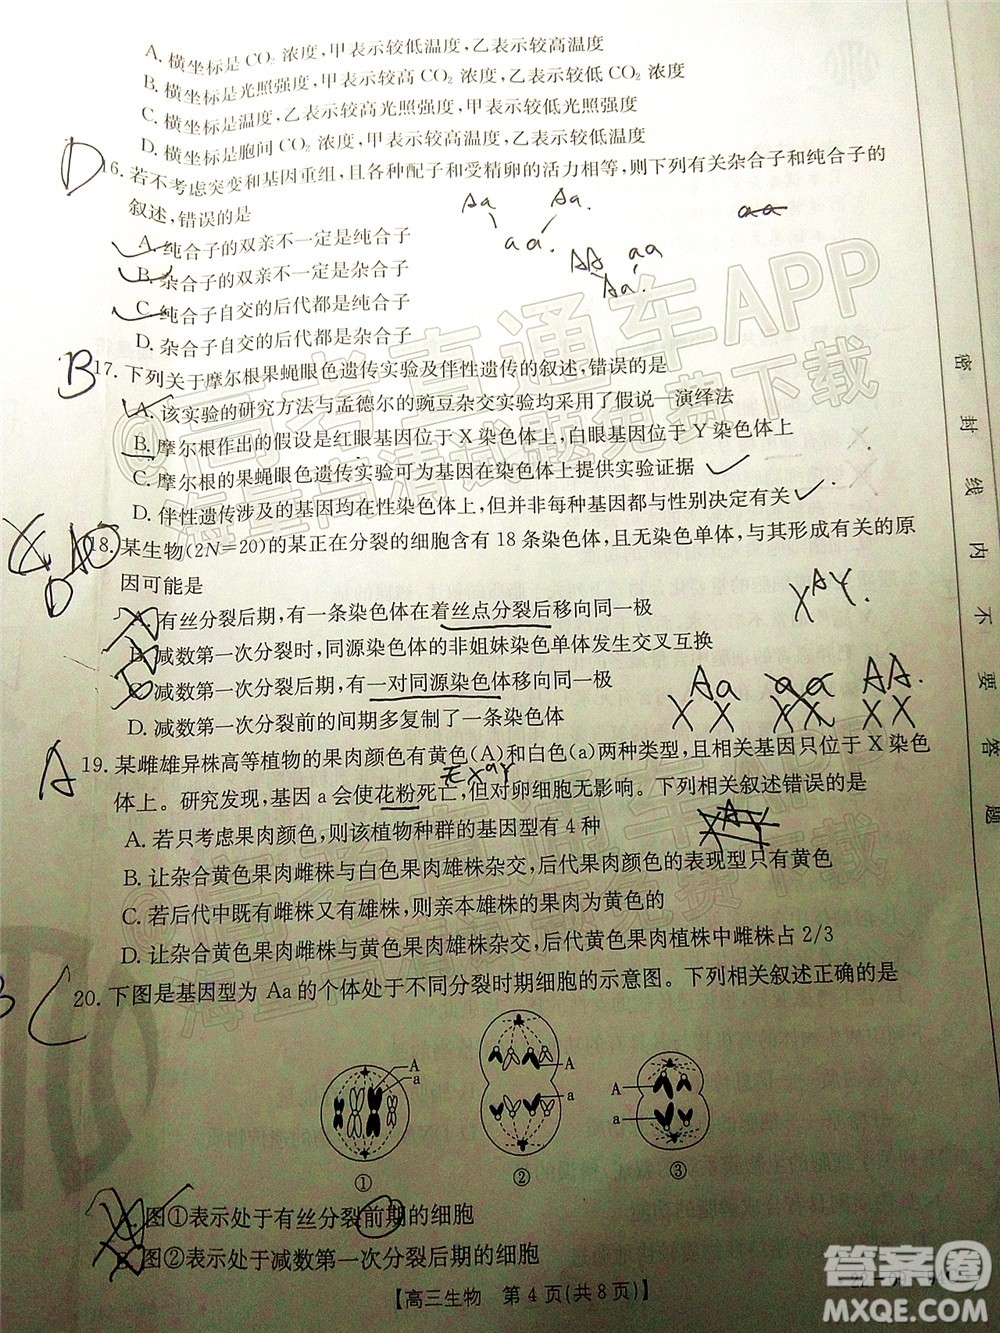 A. 横坐标是 CO₂ 浓度,甲表示较低温度,乙表示较高温度
B. 横坐标是光照强度,甲表示较高 CO₂ 浓度,乙表示较低 CO₂ 浓度
C. 横坐标是温度,乙表示较高光照强度,甲表示较低光照强度
D. 横坐标是胞间 CO₂ 浓度,甲表示较高温度,乙表示较低温度
D
16. 若不考虑突变和基因重组,且各种配子和受精卵的活力相等,则下列有关杂合子和纯合子的
叙述,错误的是
Aa Aa. aa
aa. AA aa
Aa.
A. 纯合子的双亲不一定是纯合子
B. 杂合子的双亲不一定是杂合子
C. 纯合子自交的后代都是纯合子
D. 杂合子自交的后代都是杂合子
B
17. 下列关于摩尔根果蝇眼色遗传实验及伴性遗传的叙述,错误的是
A. 该实验的研究方法与孟德尔的豌豆杂交实验均采用了假说—演绎法
B. 摩尔根作出的假设是红眼基因位于 X 染色体上,白眼基因位于 Y 染色体上
C. 摩尔根的果蝇眼色遗传实验可为基因在染色体上提供实验证据
D. 伴性遗传涉及的基因均在染色体上,但并非每种基因都与性别决定有关
D
18. 某生物(2N=20)的某正在分裂的细胞含有 18 条染色体,且无单染色体,与其形成有关的原
因可能是
XᴬY.
A. 有丝分裂后期,有一条染色体在着丝点分裂后移向同一极
B. 减数第一次分裂时,同源染色体的非姐妹染色单体发生交叉互换
C. 减数第一次分裂后期,有一对同源染色体移向同一极
D. 减数第一次分裂前的间期多复制了一条染色体
Aa aa AA.
XX XX XX
A
19. 某雌雄异株高等植物的果肉颜色有黄色(A)和白色(a)两种类型,且相关基因只位于 X 染色
体上。研究发现,基因 a 会使花粉死亡,但对卵细胞无影响。下列叙述错误的是
无XᵃY
A. 若只考虑果肉颜色,则该植物种群的基因型有 4 种
B. 让杂合黄色果肉雌株与白色果肉雄株杂交,后代果肉颜色的表现型只有黄色
C. 若后代中既有雌株又有雄株,则亲本雄株的果肉为黄色的
D. 让杂合黄色果肉雌株与黄色果肉雄株杂交,后代黄色果肉植株中雌株占 2/3
B C
20. 下图是基因型为 Aa 的个体处于不同分裂时期细胞的示意图。下列相关叙述正确的是
A
a
A
a
A
a
① ② ③
A. 图①表示处于有丝分裂前期的细胞
B. 图②表示处于减数第一次分裂后期的细胞
【高三生物 第 4 页(共 8 页)】
密封线内不要答题
@高考直通车APP
海量高清试题免费下载
@高考直通车APP
海量高清试题免费下载
答案圈
MXQE.COM